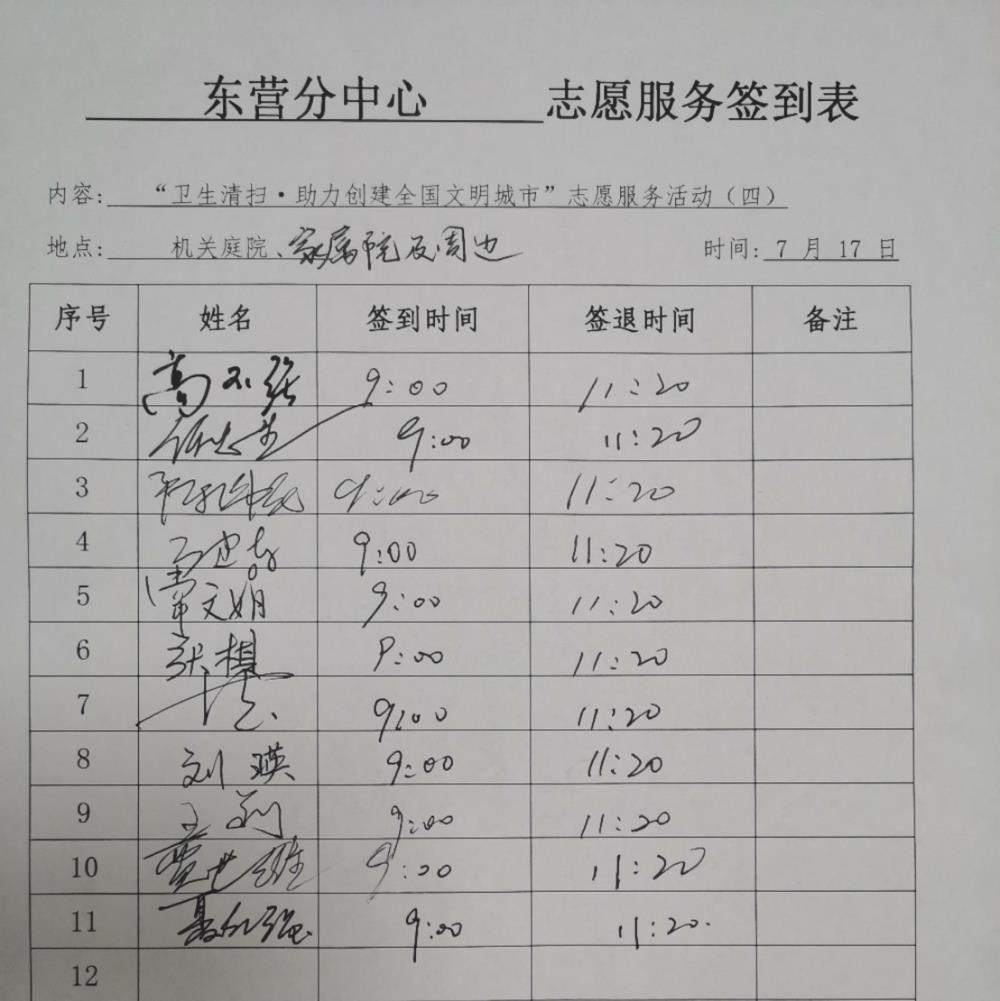 东营分中心 志愿服务签到表
内容: “卫生清扫·助力创建全国文明城市”志愿服务活动(四)
地点: 机关庭院、家属院及周边 时间: 7 月 17 日
序号 姓名 签到时间 签退时间 备注
1 9:00 11:20
2 9:00 11:20
3 9:00 11:20
4 9:00 11:20
5 9:00 11:20
6 9:00 11:20
7 9:00 11:20
8 刘瑛 9:00 11:20
9 9:00 11:20
10 9:00 11:20
11 9:00 11:20.
12